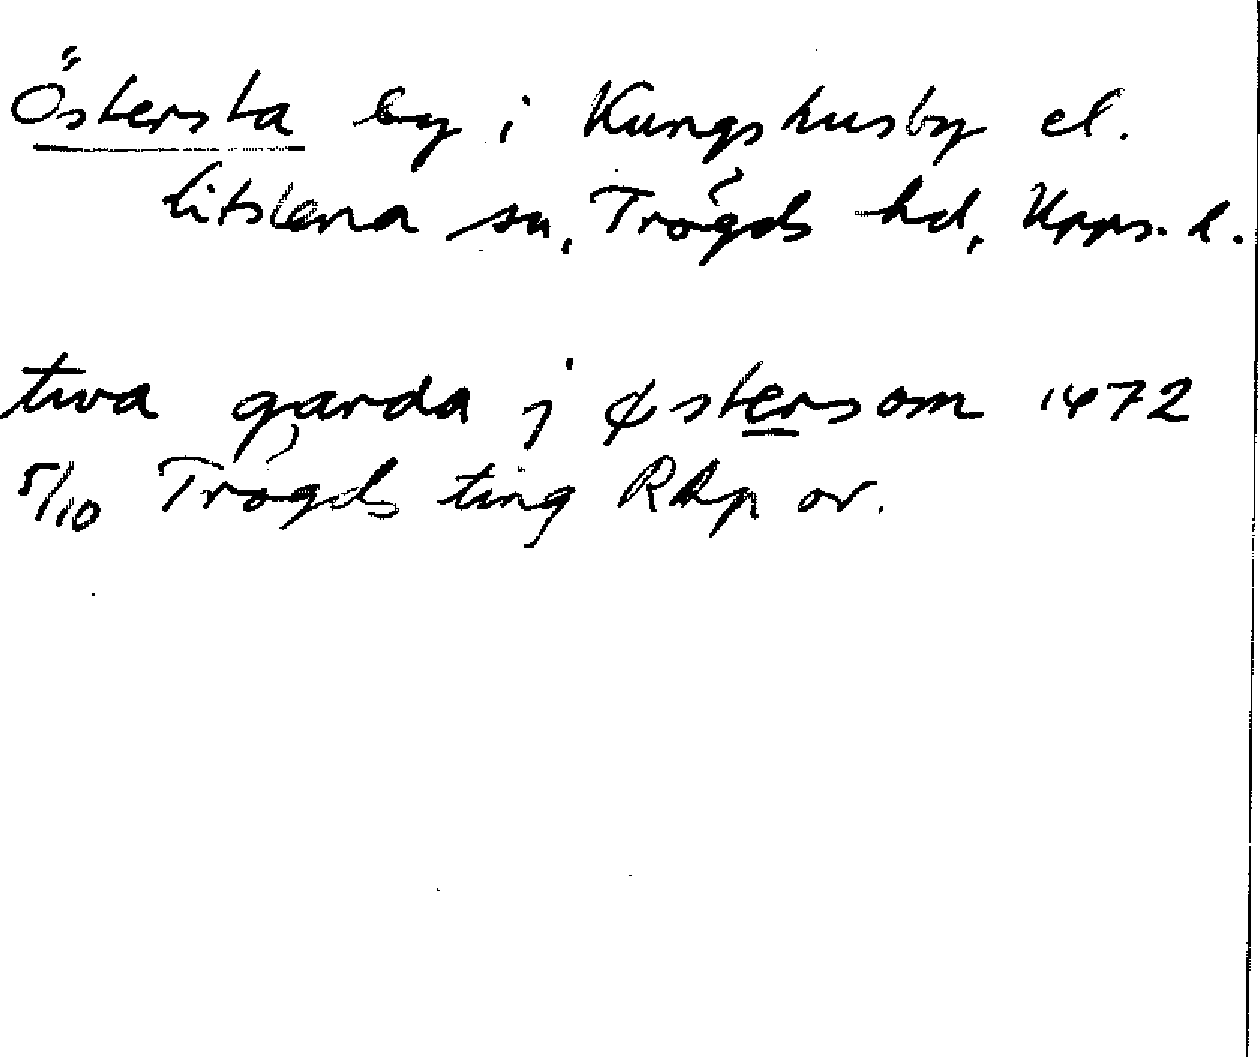 Östersta by i Kungshusby el.
Litslena sn, Trögds hd, Upps. l.
twa garda j østersom 1472
5/10 Trögds ting RAp or.